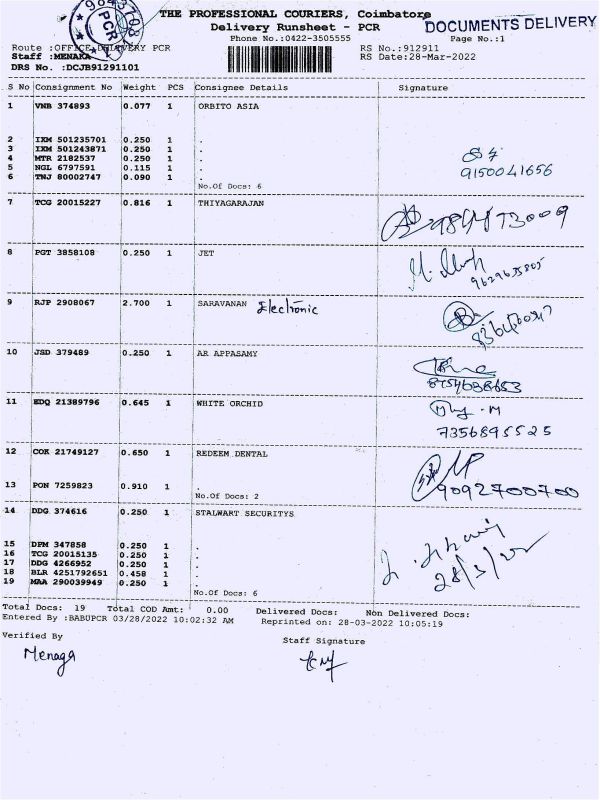 THE PROFESSIONAL COURIERS, Coimbatore
DOCUMENTS DELIVERY
Delivery Runsheet - PCR
Phone No.:0422-3505555 Page No.:1
Route :OFFICE DELIVERY PCR RS No.:912911
Staff :MENAKA RS Date:28-Mar-2022
DRS No. :DCJB91291101
PCR
S No Consignment No Weight PCS Consignee Details Signature
1 VNB 374893 0.077 1 ORBITO ASIA
2 IXM 501235701 0.250 1 .
3 IXM 501243871 0.250 1 .
4 MTR 2182537 0.250 1 .
5 NGL 6797591 0.115 1 .
6 TNJ 80002747 0.090 1 .
9150041656
No.Of Docs: 6
7 TCG 20015227 0.816 1 THIYAGARAJAN
8 PGT 3858108 0.250 1 JET
9 RJP 2908067 2.700 1 SARAVANAN Electronic
10 JSD 379489 0.250 1 AR APPASAMY
11 EDQ 21389796 0.645 1 WHITE ORCHID
7356895525
12 COK 21749127 0.650 1 REDEEM DENTAL
13 PON 7259823 0.910 1 .
9092700700
No.Of Docs: 2
14 DDG 374616 0.250 1 STALWART SECURITYS
15 DPM 347858 0.250 1 .
16 TCG 20015135 0.250 1 .
17 DDG 4266952 0.250 1 .
18 BLR 4251792651 0.458 1 .
19 MAA 290039949 0.250 1 .
28/3/22
No.Of Docs: 6
Total Docs: 19 Total COD Amt: 0.00 Delivered Docs: Non Delivered Docs:
Entered By :BABUPCR 03/28/2022 10:02:32 AM Reprinted on: 28-03-2022 10:05:19
Verified By Staff Signature
Menaga